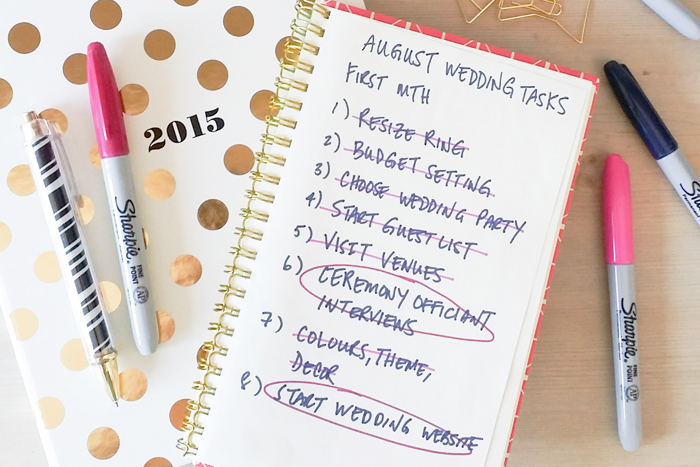 2015
Sharpie
FINE
POINT
AP
AUGUST WEDDING TASKS
FIRST MTH
1) RESIZE RING
2) BUDGET SETTING
3) CHOOSE WEDDING PARTY
4) START GUEST LIST
5) VISIT VENUES
6) CEREMONY OFFICIANT
INTERVIEWS
7) COLOURS, THEME,
DECOR
8) START WEDDING WEBSITE
Sharpie
FINE
POINT
AP
Sharpie